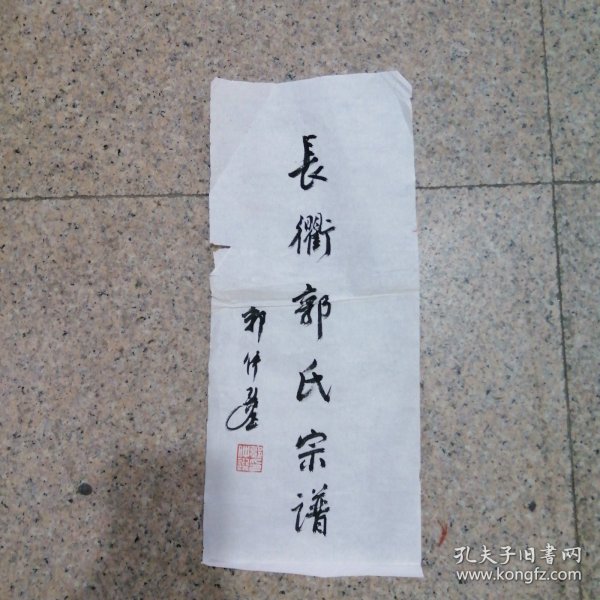 長衢郭氏宗谱
郭仲
孔夫子旧書网
www.kongfz.com